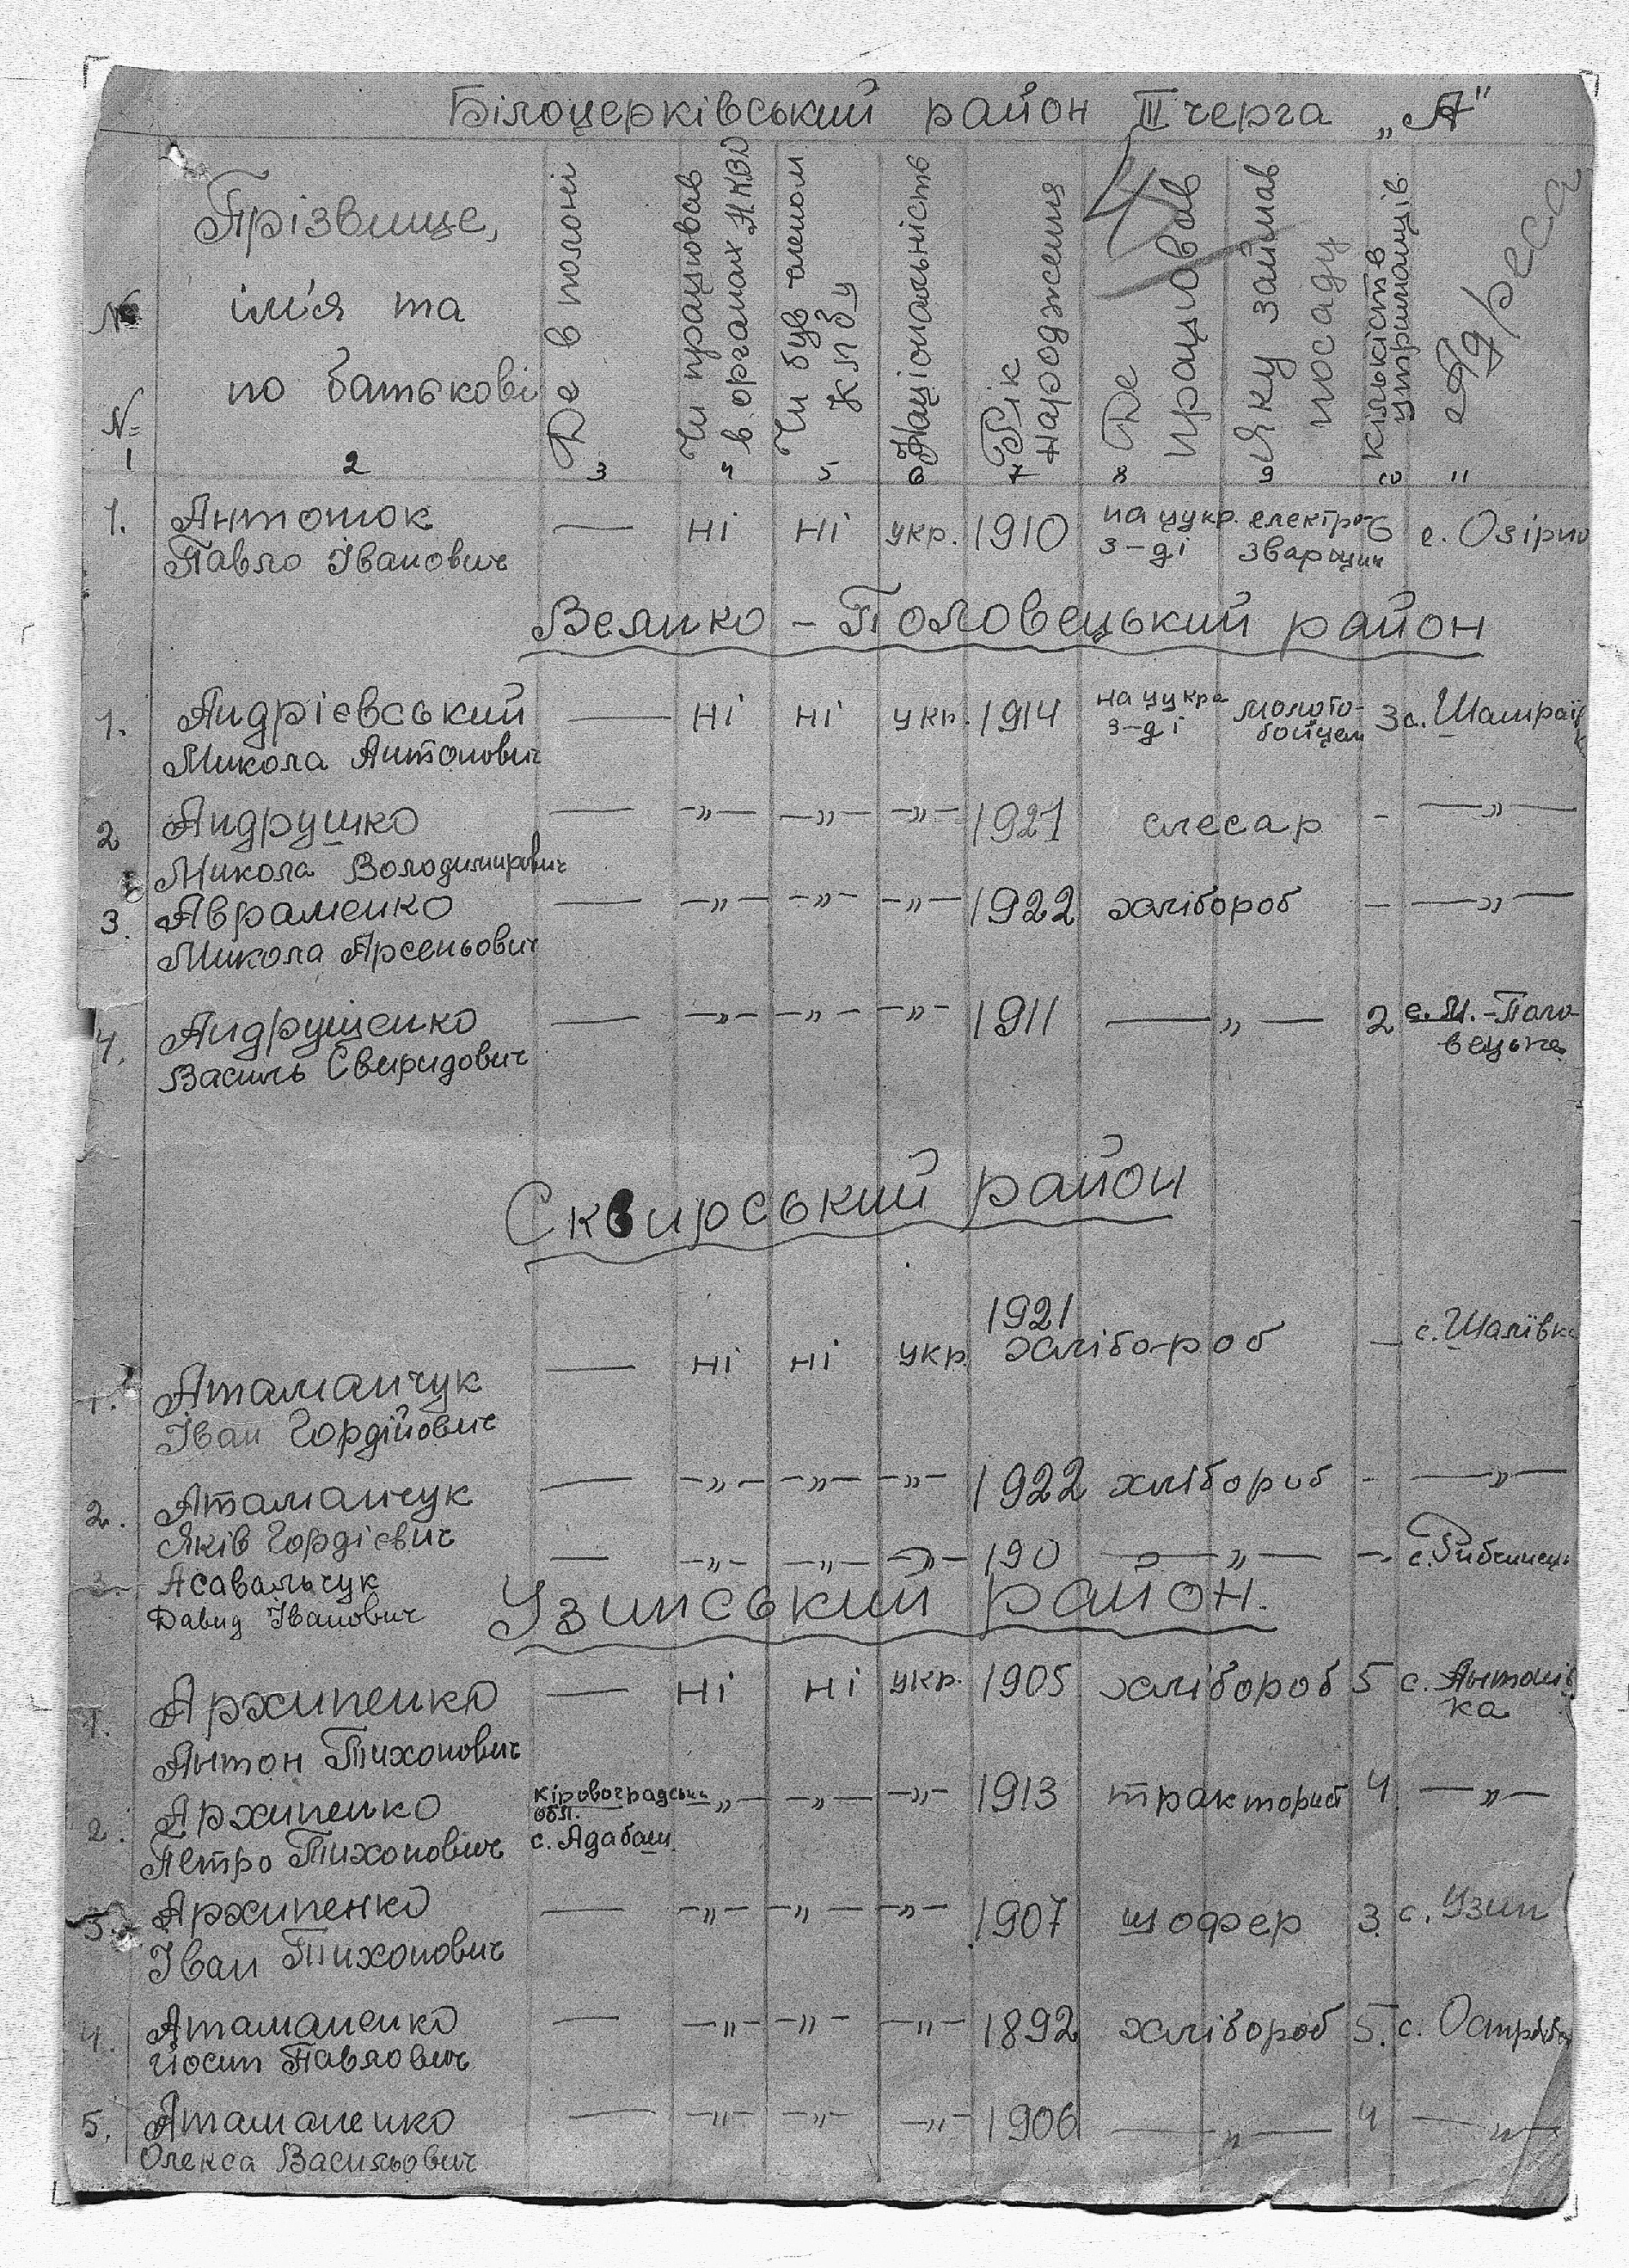 Білоцерківський район III черга „А"
№ №
Прізвище, ім'я та по батькові
Де в полоні
Чи працював в органах НКВД
Чи був членом КПбУ
Національність
Рік народження
Де працював
Яку займав посаду
Кількість утриманців
Адреса
4
1 2 3 4 5 6 7 8 9 10 11
1. Антонюк — Ні Ні укр. 1910 на цукр. електро- 6 с. Озірно
Павло Іванович з-ді зварщик
Велико-Половецький район
1. Андрієвський — Ні Ні укр. 1914 на цукро з-ді молото-бойцем 3 с. Шамраївк
Микола Антонович
2 Андрушко — —"— —"— —"— 1921 слесар - —"—
Микола Володимирович
3. Авраменко — —"— —"— —"— 1922 хлібороб - —"—
Микола Арсеньович
4. Андрущенко — —"— —"— —"— 1911 —"— 2 с. М.-Поло-
Василь Свиридович вецьке
Сквирський район
1. Атаманчук — Ні Ні укр. 1921 хлібороб — с. Шаліївка
Іван Гордійович
2. Атаманчук — —"— —"— —"— 1922 хлібороб - —"—
Яків Гордієвич
3. Асавальчук — —"— —"— —"— 190 —"— -
Давид Іванович
Узинський район.
1. Архипенко — Ні Ні укр. 1905 хлібороб 5 с. Антонів
ка
Антон Тихонович
2. Архипенко Кіровоградськ —"— —"— —"— 1913 тракторист 4 —"—
обл.
Петро Тихонович с. Адабаш
3. Архипенко — —"— —"— —"— 1907 шофер 3 с. Узин
Іван Тихонович
4. Атаманенко — —"— —"— —"— 1892 хлібороб 5. с.
Йосип Павлович
5. Атаманенко — —"— —"— —"— 1906 —"— 4 —"—
Олекса Васильович